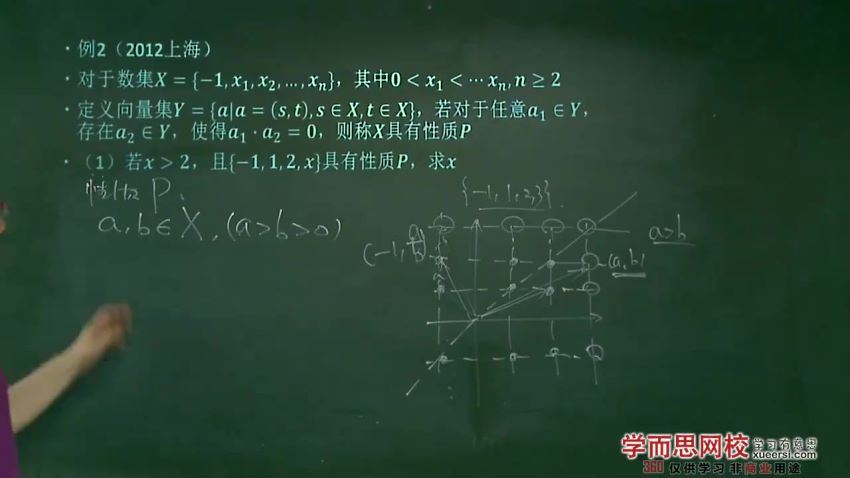 · 例2（2012上海）
· 对于数集X = {−1, x₁, x₂, …, xₙ}，其中0 < x₁ < ⋯ xₙ, n ≥ 2
· 定义向量集Y = {a|a = (s, t), s ∈ X, t ∈ X}，若对于任意a₁ ∈ Y，
存在a₂ ∈ Y，使得a₁ · a₂ = 0，则称X具有性质P
· （1）若x > 2，且{−1, 1, 2, x}具有性质P，求x
性质P.
{−1, 1, 2, 3}.
a, b ∈ X, (a>b>0)
a>b
(−1, a/b)
(a, b)
学而思网校 学习有意思
xueersi.com
360 仅供学习 非商业用途